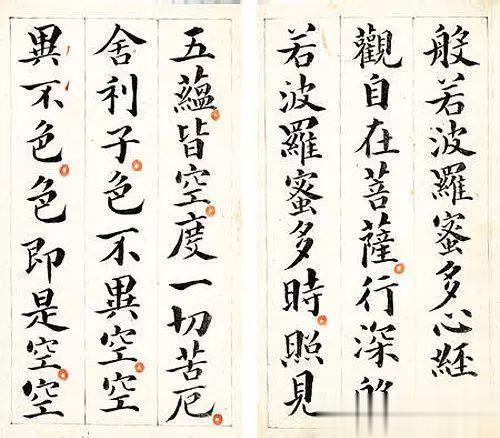 般若波羅蜜多心經
觀自在菩薩行深般
若波羅蜜多時照見
五蘊皆空度一切苦厄
舍利子色不異空空
異不色色即是空空